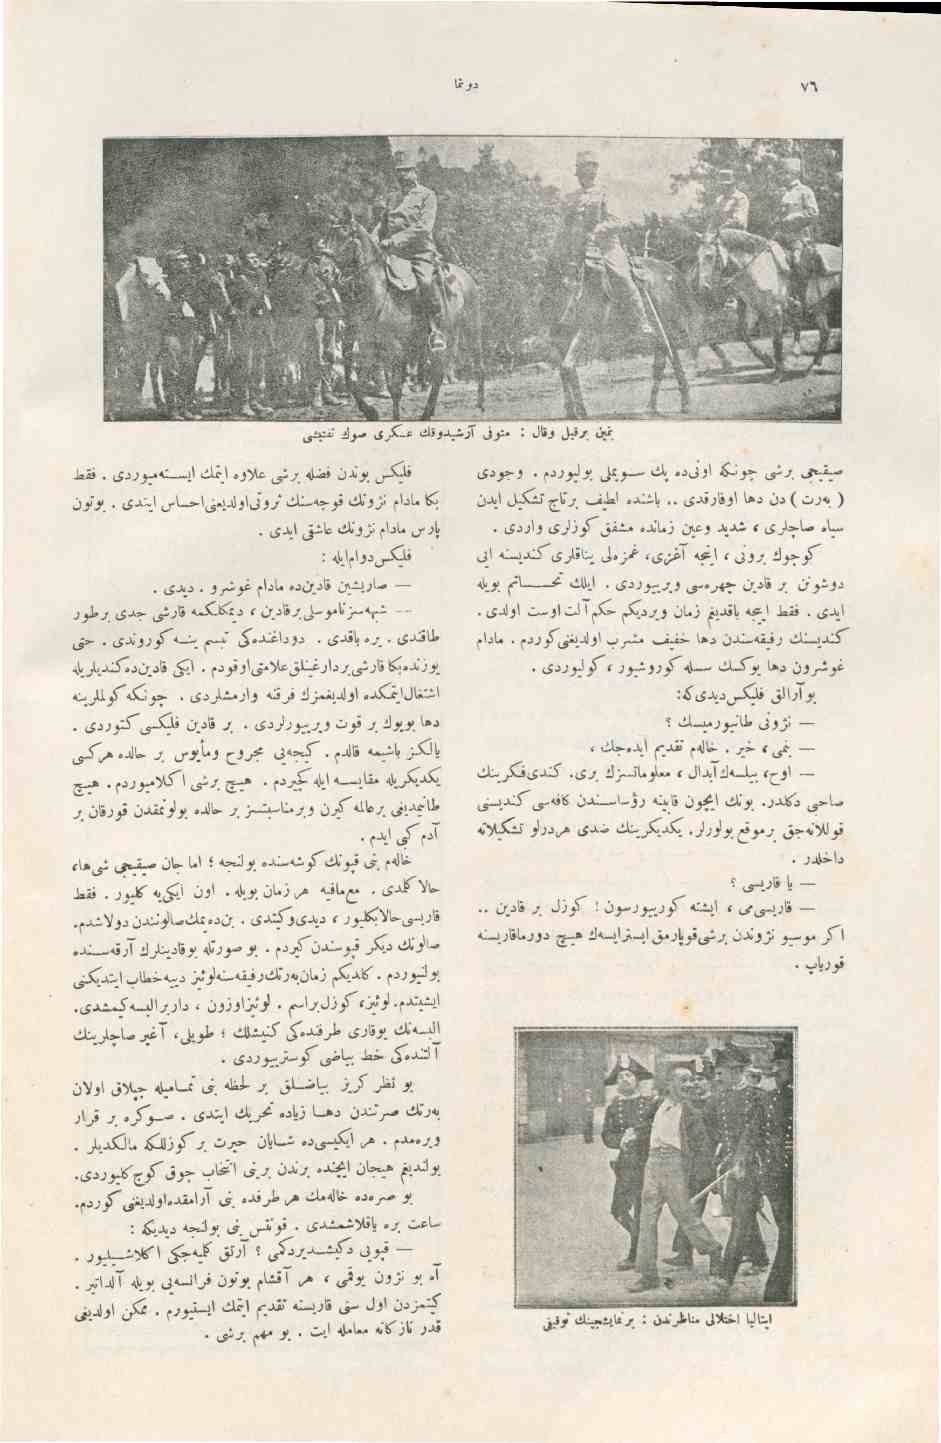 ٧٦
دوننما
بتمین برقیل وقال : متوفی آرشیدوقك عسکری صوك تفتیشی
صیقیجی برشی چونکه اونی‌ده پك سویملی بولیوردم . وجودی
( به‌رت ) دن دها اوفارقدی .. باشنده لطیف برتاج تشکیل ایدن
سیاه صاچلری ، شدید وعین زمانده مشفق کوزلری واردی .
کوچوك برونی ، اینجه آغزی، غمزه‌لی یناقلری کندیسنه ایی
دوشونن بر قادین چهره‌سی ویرییوردی . ایلك تحساتم بویله
ایدی . فقط اییجه باقدیغم زمان ویردیکم حکم آلت اوست اولدی .
کندیسنك رفیقه‌سندن دها خفیف مشرب اولدیغنی کوردم . مادام
غوشرون دها یوکسك سسله کوروشیور ، کولیوردی .
بوآرالق فلیکس دیدی‌که:
— نژونی طانیورمیسك ؟
— بنمی ، خیر . خاله‌م تقدیم ایده‌جك ،
— اوح، بیلسه‌ك آبدال ، معلوماتسزك بری. کندی فکرینك
صاحبی دکلدر. بونك ایچون قابینه رؤساسندن کافه‌سی کندیسنی
قوللانه‌جق برموقع بولورلر. یکدیکرینك ضدی هردرلو تشکیلاته
داخلدر .
— یا قاریسی ؟
— قاریسی‌می ، ایشته کورییورسون ! کوزل بر قادین ..
اکر موسیو نژوندن برشی‌قوپارمق ایسترایسه‌ك هیچ دورماقاریسنه
قوریاپ .
ایتالیا اختلالی مناظرندن : برنمایشجینك توقیفی
فلیکس بوندن فضله برشی علاوه ایتمك ایسته‌میوردی . فقط
بکا مادام نژونك قوجه‌سنك ثروتی‌اولدیغنی‌احساس ایتدی . بوتون
پارس مادام نژونك عاشقی ایدی .
فلیکس‌دوام‌ایله :
— صاریشین قادین‌ده مادام غوشرو . دیدی .
— شبهه‌سزناموسلی برقادین ، دیمکلکمه قارشی جدی برطور
طاقندی . یره باقدی . دوداغنده‌کی تبسم ینه کوروندی . حتی
یوزنده‌بکا قارشی بردارغینلق‌علامتی‌اوقودم . ایکی قادین‌ده‌کندیلریله
اشتغال‌ایتمکده اولدیغمزك فرقنه وارمشلردی . چونکه‌کولملرینه
دها بویوك بر قوت ویرییورلردی . بر قادین فلیکسی کتوردی .
یالکز باشیمه قالدم . کیجه‌یی مجروح ومأیوس بر حالده هرکسی
یکدیکریله مقایسه ایله کچیردم . هیچ برشی آکلامیوردم . هیچ
طانیمدیغی برعالمه کیرن وبرمناسبتسز بر حالده بولونمقدن قورقان بر
آدم کبی ایدم .
خاله‌م بنی قپونك کوشه‌سنده بولنجه ؛ اما جان صیقیجی شی‌ها،
حالا کلمدی . مع‌مافیه هر زمان بویله . اون ایکی‌یه کلیور . فقط
قاریسی‌حالابکلیور ، دیدی‌وکیتدی . بن‌ده‌یمك‌صالونندن دولاشدم.
صالونك دیکر قپوسندن کیردم . بو صورتله بوقادینلرك آرقه‌سنده
بولنیوردم . کلدیکم زمان‌به‌رتك‌رفیقه‌سنه‌لوئیز دییه‌خطاب ایتدیکنی
ایشیتدم. لوئیز، کوزل‌براسم . لوئیزاوزون ، داربرالبسه‌کیمشدی.
البسه‌نك یوقاری طرفنده‌کی کنیشلك ؛ طوپلی، آغیر صاچلرینك
آلتنده‌کی خط بیاضی کوسترییوردی .
بو نظر کریز بیاضلق بر لحظه بنی تمامیله چیلاق اولان
به‌رتك صرتندن دها زیاده تحریك ایتدی . صوکره بر قرار
ویره‌مدم . هر ایکیسی‌ده شایان حیرت بر کوزللکه مالکدیلر .
بولندیغم هیجان ایچنده برندن برینی انتخاب چوق کوچ‌کلیوردی.
بو صره‌ده خاله‌مك هر طرفده بنی آرامقده‌اولدیغنی کوردم.
ساعت بره یاقلاشمشدی . قونتس بنی بولنجه دیدیکه :
— قپویی دکیشدیردکمی ؟ آرتق کلمیه‌جکی آکلاشیلیور .
آه بو نژون یوقمی ، هر آقشام بوتون فرانسه‌یی بویله آلداتیر .
کیتمزدن اول سنی قاریسنه تقدیم ایتمك ایستیورم . ممکن اولدیغی
قدر نازکانه معامله ایت . بو مهم برشی .